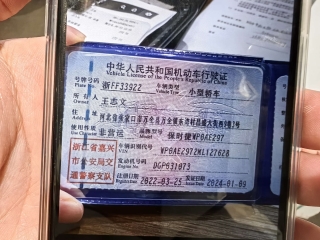 中华人民共和国机动车行驶证
Vehicle License of the People's Republic of China
号牌号码 浙FF33922 车辆类型 小型轿车
Plate No. Vehicle Type
所有人 王志文
Owner
住址
Address
使用性质 非营运 品牌型号 保时捷WP0AE297
Use Character Model
浙江省嘉兴
市公安局交
通警察支队
车辆识别代号 WP0AE2972ML127628
VIN
发动机号码 DGP031073
Engine No.
注册日期 2022-03-25 发证日期 2024-01-09